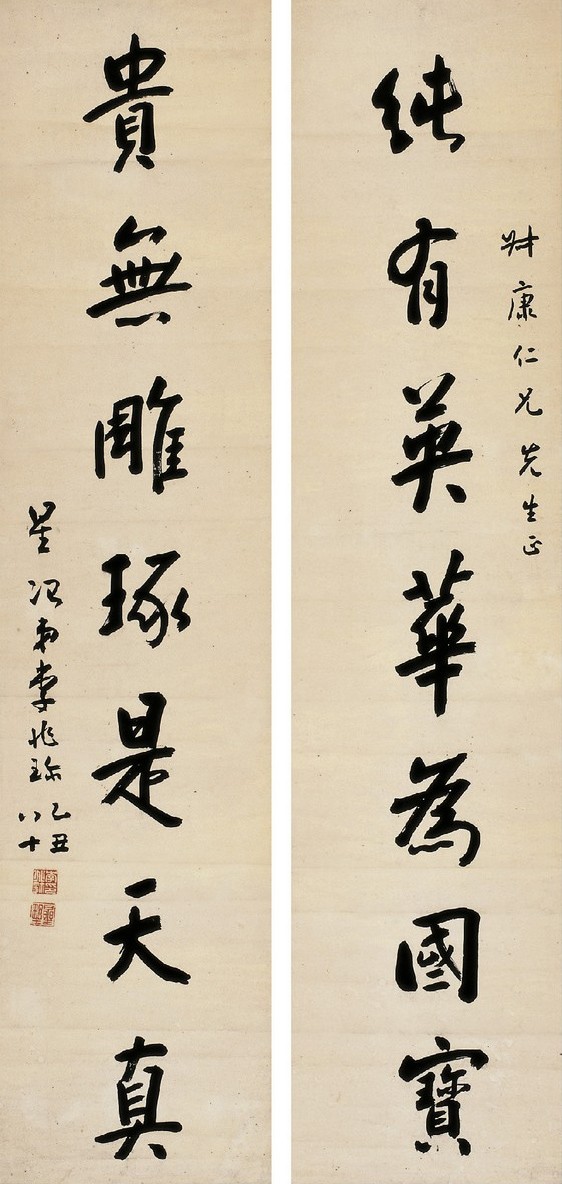 康仁兄先生正
純有英華為國寶
貴無雕琢是天真
星冶弟李兆珍
乙丑
八十